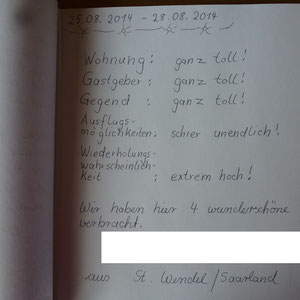 25.08.2014 - 28.08.2014
Wohnung: ganz toll!
Gastgeber: ganz toll!
Gegend: ganz toll!
Ausflugs-
möglichkeiten: schier unendlich!
Wiederholungs-
wahrscheinlich-
keit : extrem hoch!
Wir haben hier 4 wunderschöne
verbracht.
aus St. Wendel/Saarland